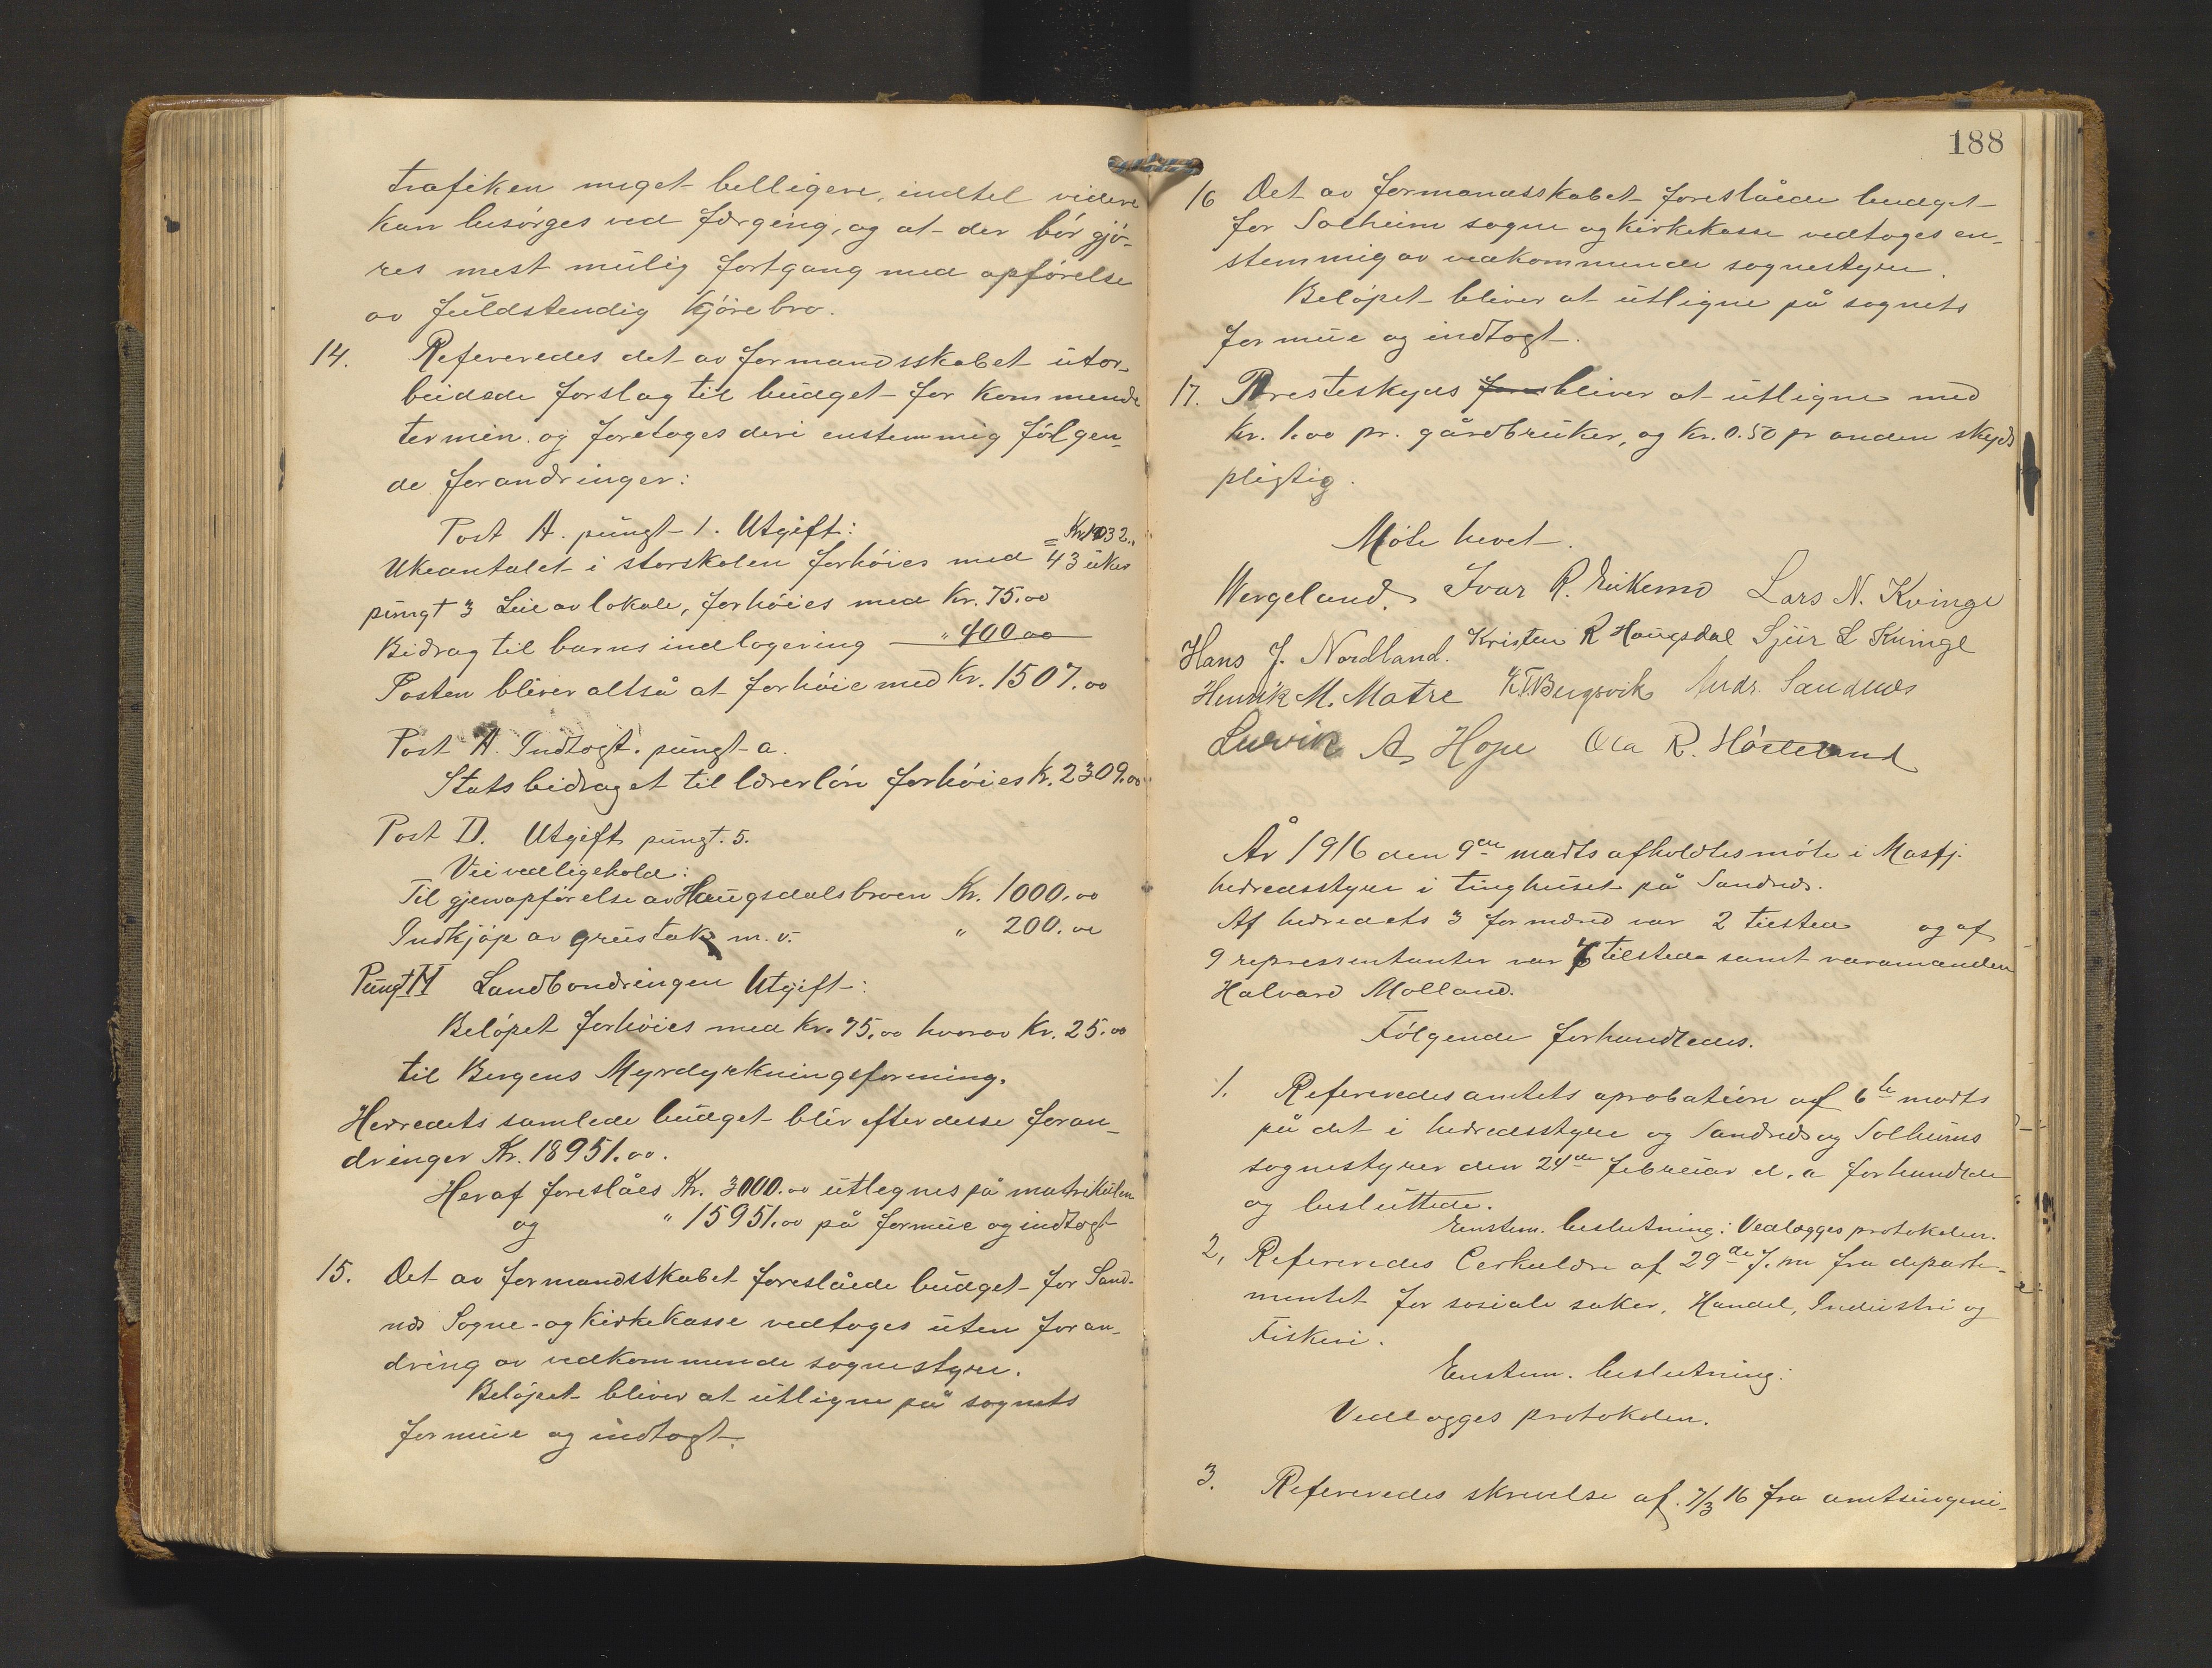 trafiken meget billigere, indtil videre
kan besørges ved færging, og at der bør gjø-
res mest mulig fortgang med opførelse
av fuldstendig kjørebro.
14. Refereredes det av formandsskabet utar-
beidede forslag til budget for kommende
termin og foretoges deri enstemmig følgen-
de forandringer:
Post A. pungt 1. Utgift:
Ukeantalet i storskolen forhøies med 43 uker = Kr. 1032..
pungt 3 Leie av lokale, forhøies med Kr. 75.00
Bidrag til barns indlogering " 400 00
Posten bliver altså at forhøie med Kr. 1507.00
Post A. Indtægt. pungt a.
Statsbidraget til lærerløn forhøies Kr. 2309.00
Post D. Utgift pungt. 5.
Veivedligehold:
Til gjenopførelse av Haugsdalsbroen Kr. 1000.00
Indkjøp av grustak m. v. " 200.00
Pungt H Landbondringen Utgift:
Beløpet forhøies med Kr. 75.00 hvorav Kr. 25.00
til Bergens Myrdyrkningsforening.
Herredets samlede budget blir efter desse foran-
dringer Kr. 18951.00.
Heraf foreslåes Kr. 3000.00 utlegnes på matrikulen
og " 15951.00 på formue og indtægt
15. Det av formandsskabet foreslåede budget for Sand-
næs Sogne- og kirkekasse vedtoges uten foran-
dring av vedkommende sognestyre.
Beløpet bliver at utligne på sognets
formue og indtægt.
188
16 Det av formandsskabet foreslåede budget
for Solheim sogne og kirkekasse vedtoges en-
stemmig av vedkommende sognestyre.
Beløpet bliver at utligne på sognets
formue og indtægt.
17. Presteskyds bliver at utligne med
Kr. 1.00 pr. gårdbruker, og Kr. 0.50 pr anden skyds
pligtig.
Møte hevet.
Wergeland. Ivar R. Eikemo Lars N. Kvinge
Hans J. Nordland. Kristen R Haugsdal Sjur L Kvinge
Henrik M. Matre K.T. Bergsvik Andr. Sandnes
Ludvik A. Hope Ola R. Hösteland
År 1916 den 9de marts afholdtes møte i Masfj.
herredsstyre i tinghuset på Sandnæs.
Af herredets 3 formænd var 2 tilstede og af
9 repræsentanter var 6 tilstede samt varamanden
Halvard Molland.
Følgende forhandledes.
1. Refereredes amtets aprobation af 6te marts
på det i herredsstyre og Sandnæs og Solheims
sognestyrer den 24de februar d. a forhandlede
og besluttede.
Enstem. beslutning: Vedlægges protokolen.
2, Refereredes Cerkulære af 29de f. m fra departe-
mentet for sosiale saker, Handel, Industri og
Fiskeri.
Enstem. beslutning:
Vedlægges protokolen.
3. Refereredes skrivelse af 7/3 16 fra amtsingeni-